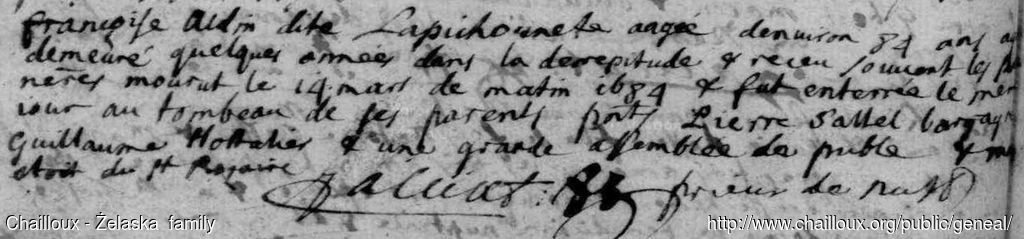 françoise Aldin dite Lapichounete aagée denuiron 84 ans a
demeuré quelques années dans la decrepitude & receu souuent les
mourut le 14 mars de matin 1684 & fut enterrée le me
iour au tombeau de ses parents pnts Pierre Sattel
Guillaume Hostalier & une grande assemblée de puble &
etoit du st Rozaire
prieur de
Chailloux - Żelaska family
http://www.chailloux.org/public/geneal/